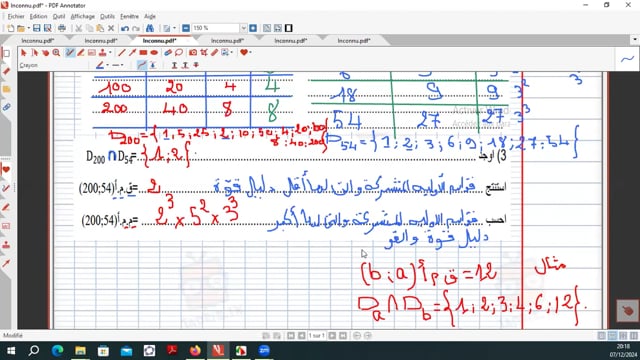 Inconnu.pdf* - PDF Annotator
Fichier Édition Affichage Outils Fenêtre Aide
150 %
Inconnu.pdf* Inconnu.pdf* Inconnu.pdf* Inconnu.pdf* Inconnu.pdf*
Crayon
100 20 4 4
18 9 9 3²
200 40 8 8
54 27 27 3³
D200={1;5;25;2;10;50;4;20;100
8;40;200}
D54={1;2;3;6;9;18;27;54}
3) أوجد D200∩D54={1;2}
استنتج ق.م.أ(200;54)=2 قواسم الأولية المشتركة والتي لها أقل دليل قوة
احسب م.م.أ(200;54)=2³×5²×3³ قواسم الأولية المشتركة والتي لها أكبر
دليل قوة والغير
مثال ق م أ(b;a)=12
Da∩Db={1;2;3;4;6;12}.
Modifié
1 sur 1
20:18
07/12/2024